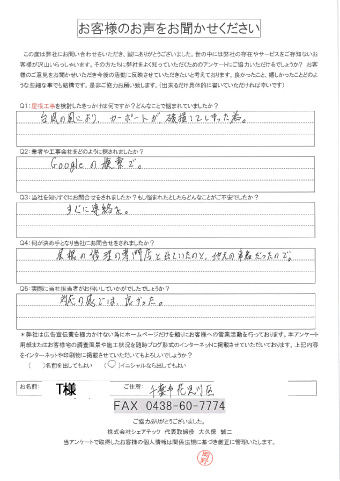 お客様のお声をお聞かせください
この度は弊社にお問い合わせをいただき、誠にありがとうございました。世の中には弊社の存在やサービスをご存知ないお
客様が沢山いらっしゃいます。その方たちに弊社をよく知っていただためのアンケートにご協力いただけるでしょうか?お客
様のご意見をお聞かせいただき今後の活動に反映させていただきたいと考えております。良かったこと、嬉しかったことどのよ
うな些細な事でも結構です。是非ご協力お願い致します。(出来るだけ具体的に書いていただければ幸いです)
Q1:屋根工事を検討したきっかけは何ですか?どんなことで悩まれていましたか?
台風の風により、カーポートが、破損してしまった為。
Q2:業者や工事会社をどのように探されましたか?
Googleの検索で。
Q3:当社を知りすぐにお問合せをされましたか?もし悩まれたとしたらどんなことがご不安でしたか?
すぐに連絡を。
Q4:何が決め手となり当社にお問合せをされましたか?
屋根の修理の専門店と
Q5:実際に当社担当者がお伺いしていかがでしたでしょうか?
良かった。
*弊社は広告宣伝費を極力かけない為にホームページだけを頼りにお客様への営業活動を行っております。本アンケート
用紙またはお客様宅の調査風景や施工状況を随時ブログ形式のインターネットに掲載させていただいております。上記内容
をインターネットや印刷物に掲載させていただいてもよろしいでしょうか?
( )名前を出してもよい (○)イニシャルなら出してもよい
お名前: T様 ご住所: 千葉市花見川区
FAX 0438-60-7774
ご協力ありがとうございました。
株式会社シェアテック 代表取締役 大久保 誠二
当アンケートで取得したお客様の個人情報は関係法規に基づき厳正に管理いたします。